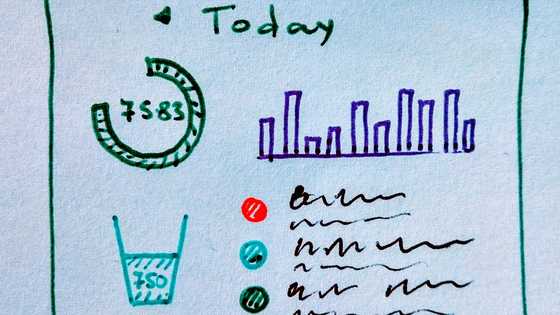 Today
7583
750